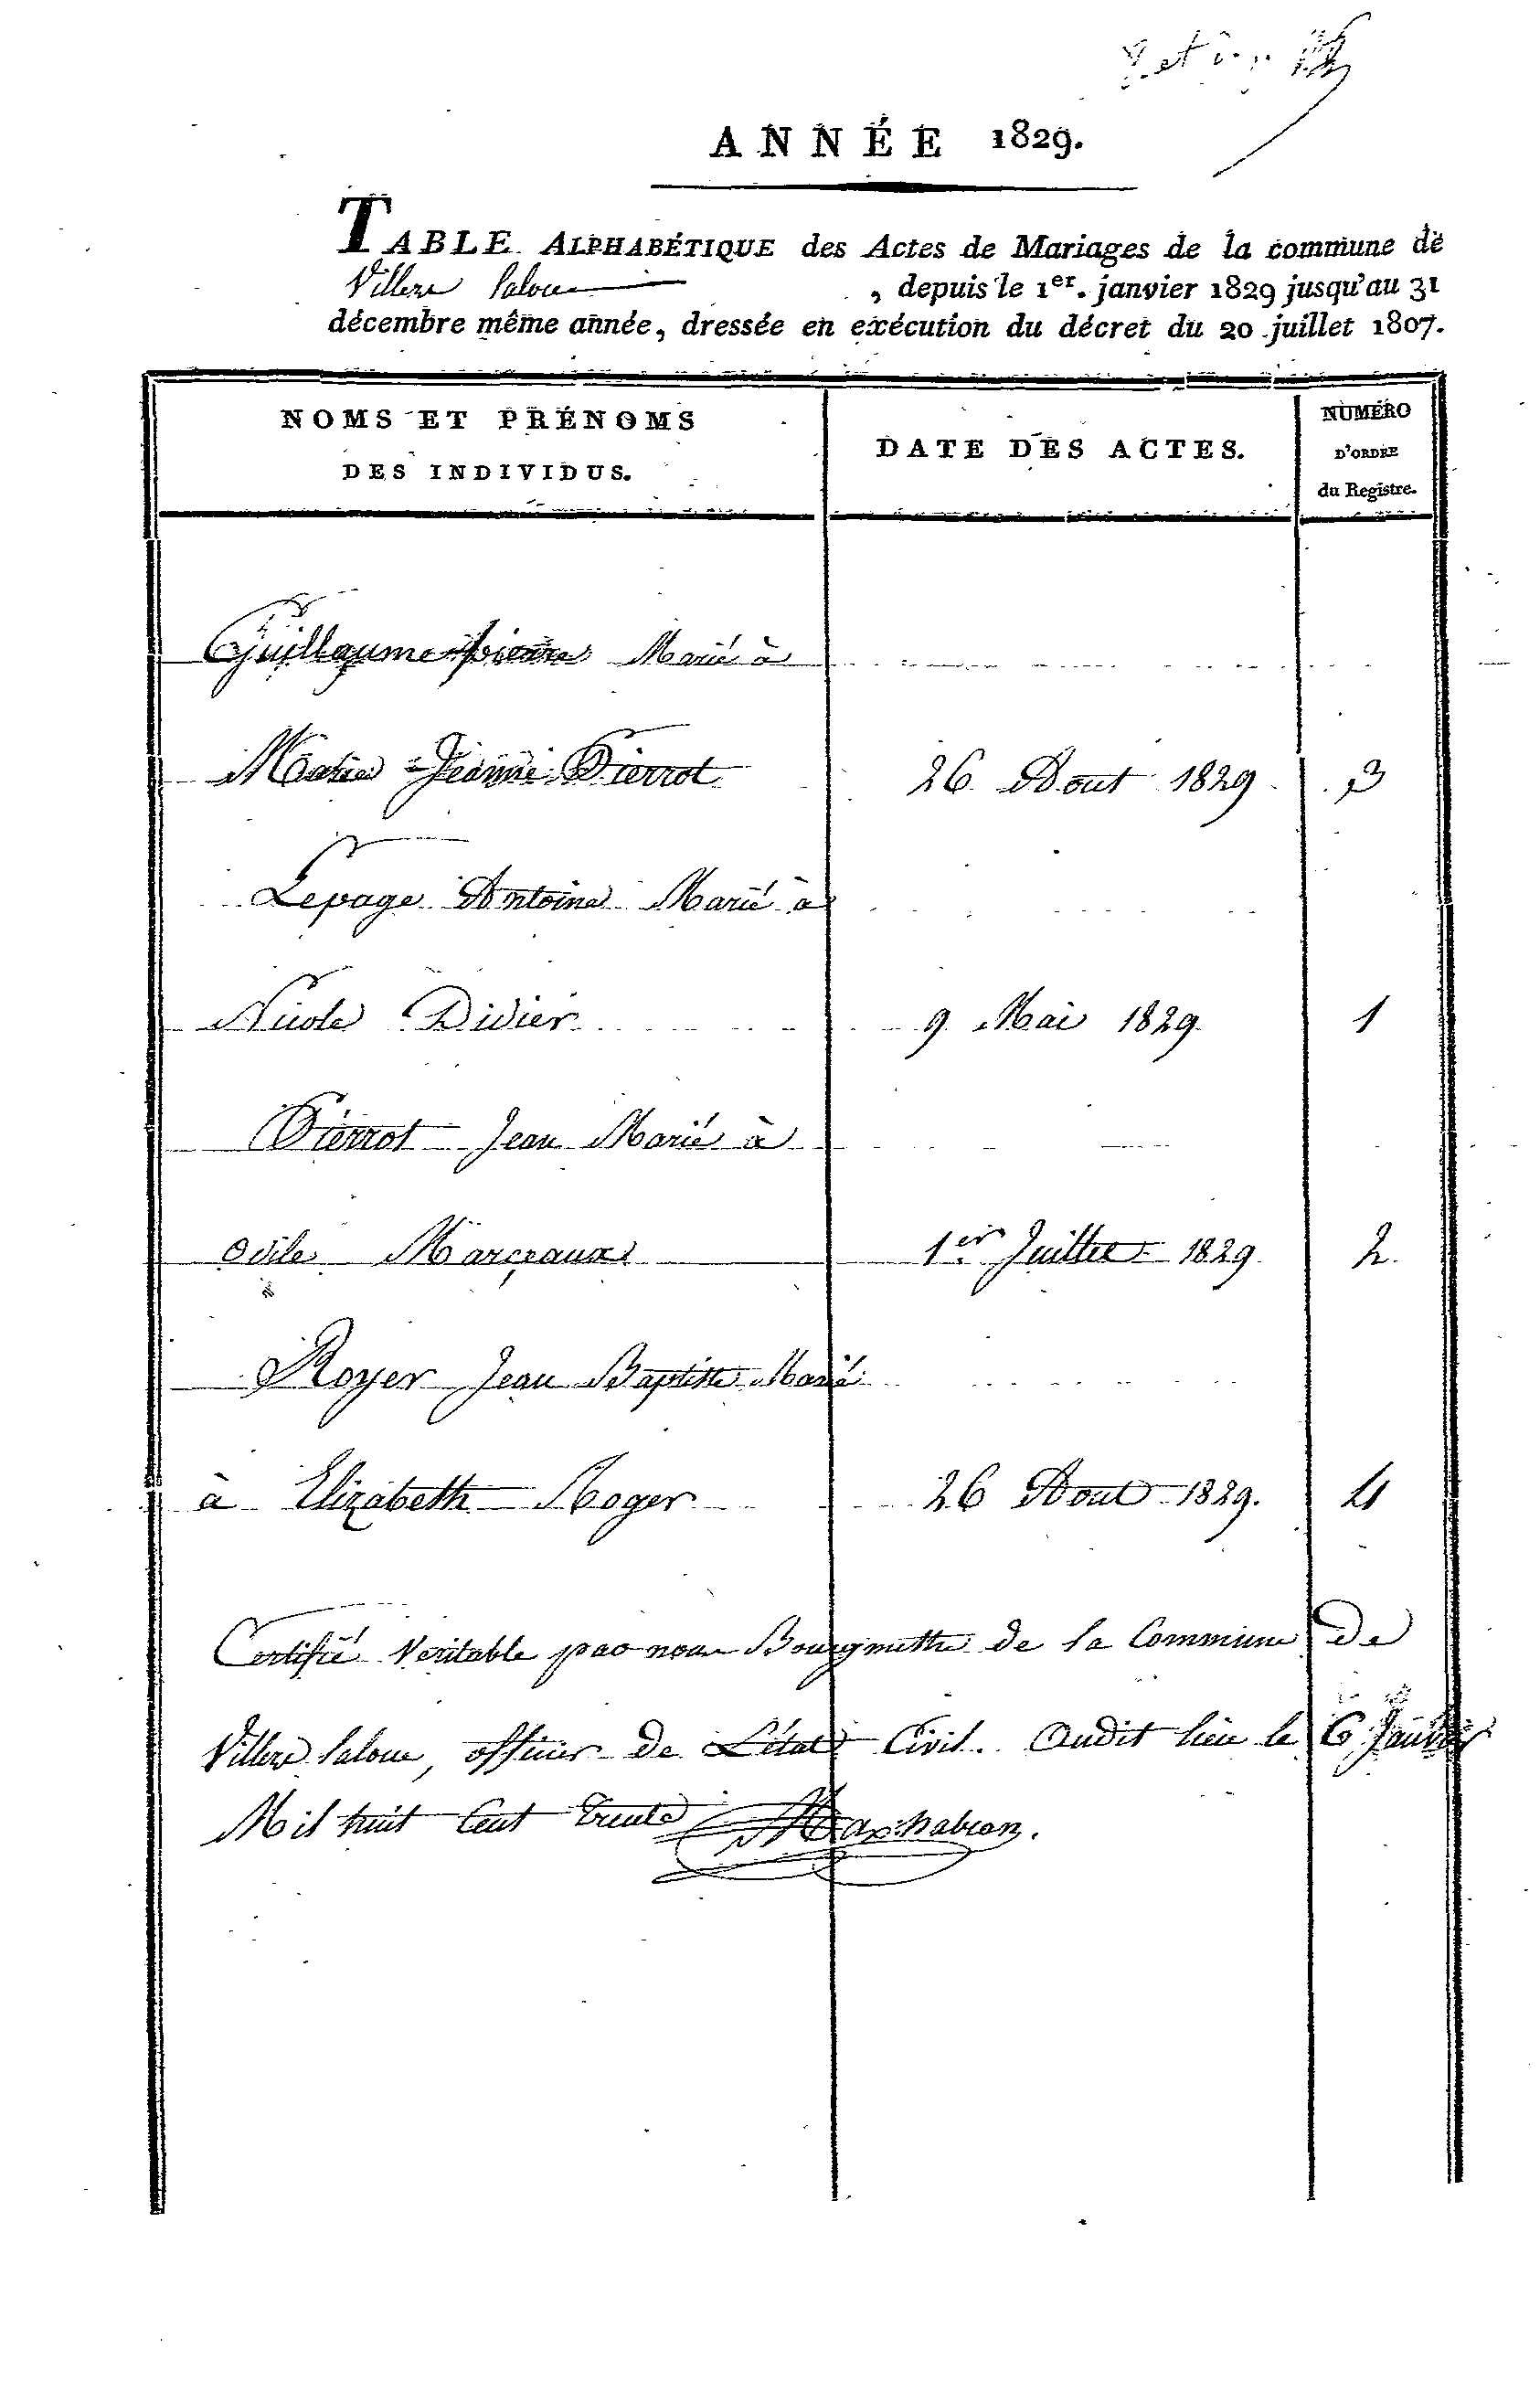 ANNÉE 1829.
TABLE ALPHABÉTIQUE des Actes de Mariages de la commune de
Villers laloue , depuis le 1er. janvier 1829 jusqu'au 31
décembre même année, dressée en exécution du décret du 20 juillet 1807.
NOMS ET PRÉNOMS
DES INDIVIDUS.
DATE DES ACTES.
NUMÉRO
D'ORDRE
du Registre.
Guillaume pierre Marié à
Marie Jeanne Pierrot 26 Aout 1829 3
Lepage Antoine Marié à
Nicole Didier 9 Mai 1829 1
Pierrot Jean Marié à
Odile Marçeaux 1er Juillet 1829 2
Royer Jean Baptiste Marié
à Elizabeth Roger 26 Aout 1829. 4
Certifié Veritable par nous Bourgmettre de la Commune De
Villers laloue, officier De L'état Civil. Audit lieu le 6 Janvier
Mil huit Cent Trente